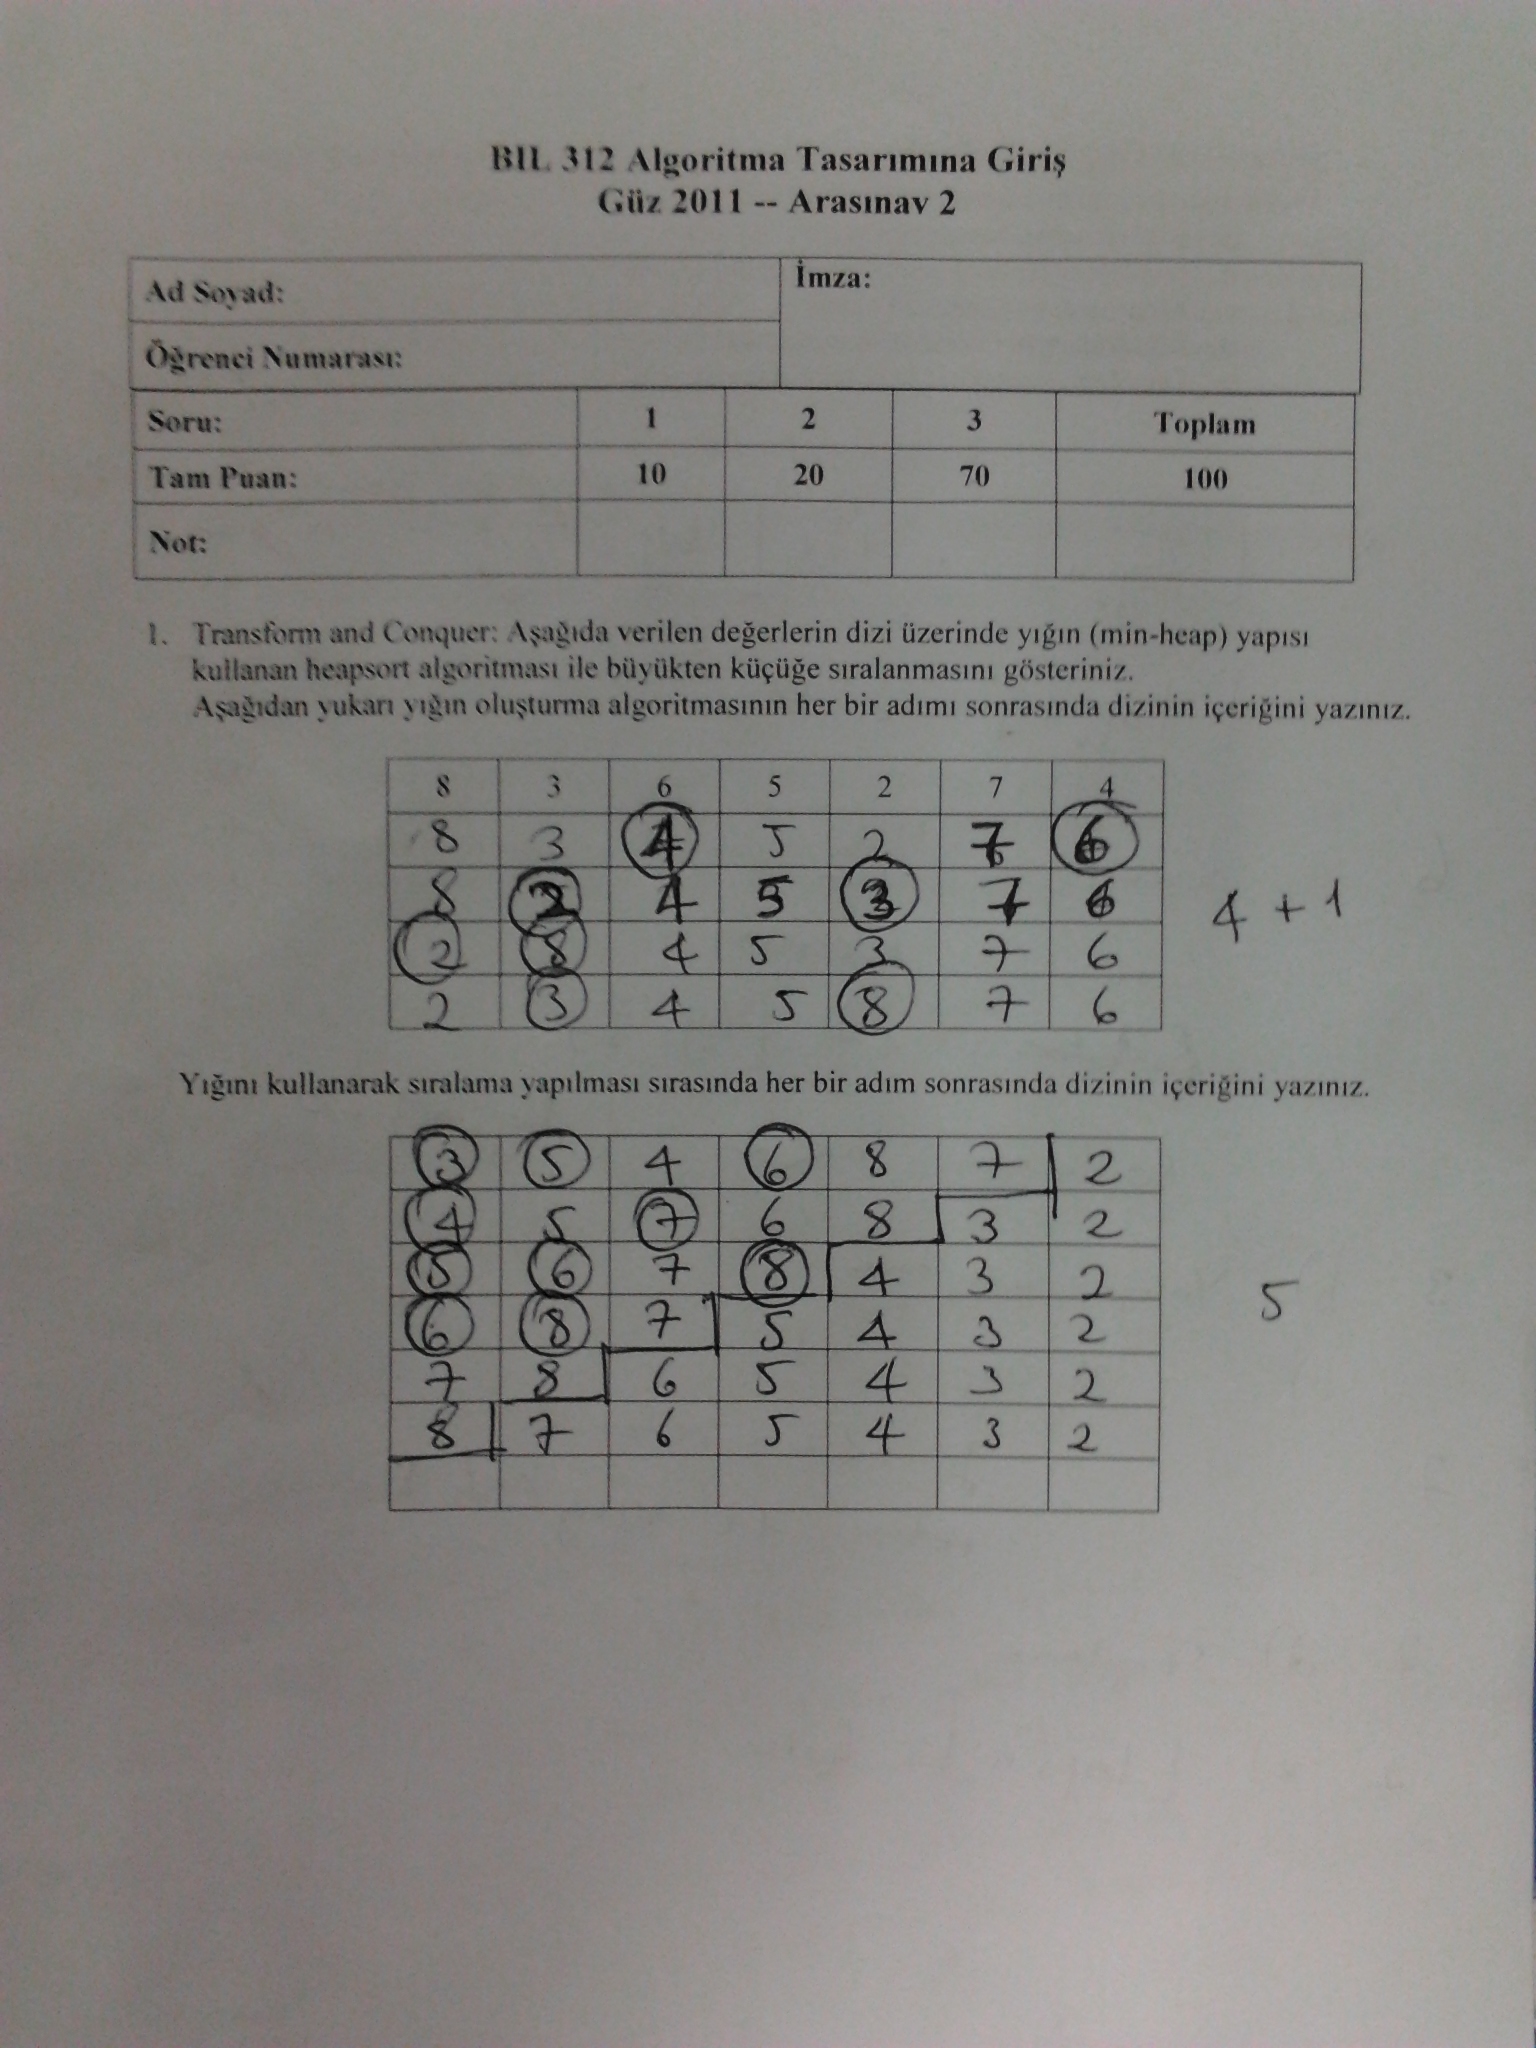 BIL 312 Algoritma Tasarımına Giriş
Güz 2011 -- Arasınav 2
Ad Soyad:
İmza:
Öğrenci Numarası:
Soru: 1 2 3 Toplam
Tam Puan: 10 20 70 100
Not:
1. Transform and Conquer: Aşağıda verilen değerlerin dizi üzerinde yığın (min-heap) yapısı
kullanan heapsort algoritması ile büyükten küçüğe sıralanmasını gösteriniz.
Aşağıdan yukarı yığın oluşturma algoritmasının her bir adımı sonrasında dizinin içeriğini yazınız.
8 3 6 5 2 7 4
8 3 4 5 2 7 6
8 2 4 5 3 7 6
4 + 1
2 8 4 5 3 7 6
2 3 4 5 8 7 6
Yığını kullanarak sıralama yapılması sırasında her bir adım sonrasında dizinin içeriğini yazınız.
3 5 4 6 8 7 2
4 5 7 6 8 3 2
5 6 7 8 4 3 2
5
6 8 7 5 4 3 2
7 8 6 5 4 3 2
8 7 6 5 4 3 2